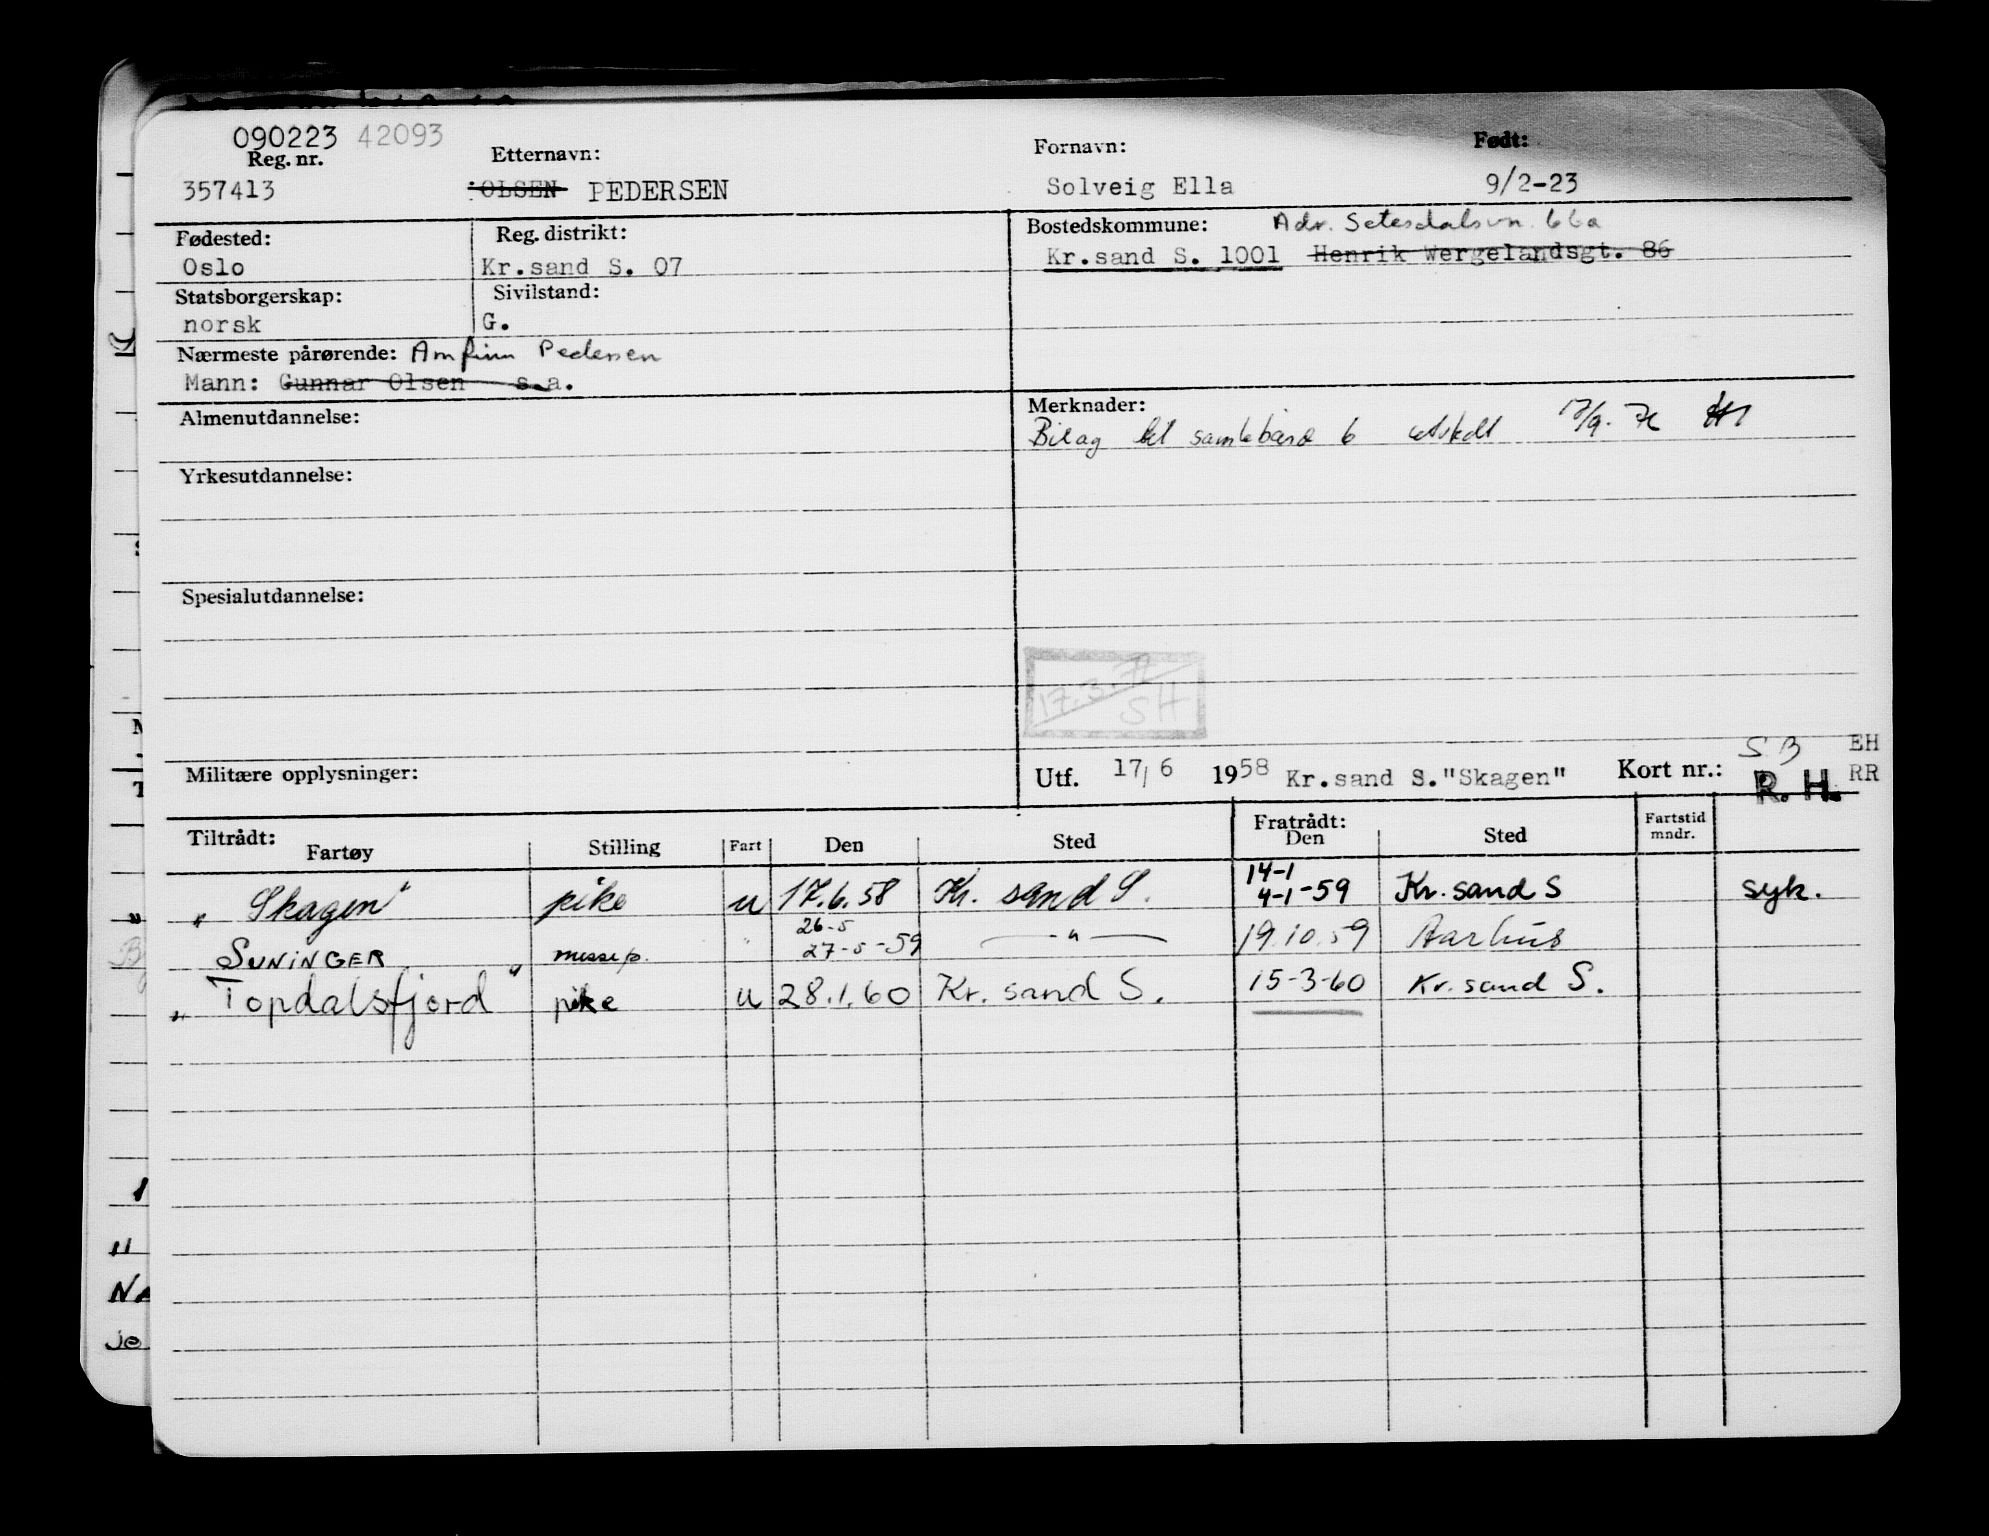 090223 42093
Reg. nr. Etternavn: Fornavn: Født:
357413 OLSEN PEDERSEN Solveig Ella 9/2-23
Fødested: Reg. distrikt: Bostedskommune: Adr. Setesdalsvn. 66a
Oslo Kr.sand S. 07 Kr.sand S. 1001 Henrik Wergelandsgt. 86
Statsborgerskap: Sivilstand:
norsk G.
Nærmeste pårørende: Arnfinn Pedersen
Mann: Gunnar Olsen s.a.
Almenutdannelse: Merknader:
Bilag til samlebånd 6 utskilt 17/9. 76
Yrkesutdannelse:
Spesialutdannelse:
17.3.72
SH
Militære opplysninger: Utf. 17/6 1958 Kr.sand S."Skagen" Kort nr.: SB EH
R. H. RR
Tiltrådt: Fratrådt: Fartstid
Fartøy Stilling Fart Den Sted Den Sted mndr.
14-1
„ Skagen" pike u 17.6.58 Kr. sand S. 4-1-59 Kr. sand S syk.
26-5
SUNINGER messep. " 27-5-59 — " — 19.10.59 Aarhus
„ Topdalsfjord" pike u 28.1.60 Kr. sand S. 15-3-60 Kr. sand S.